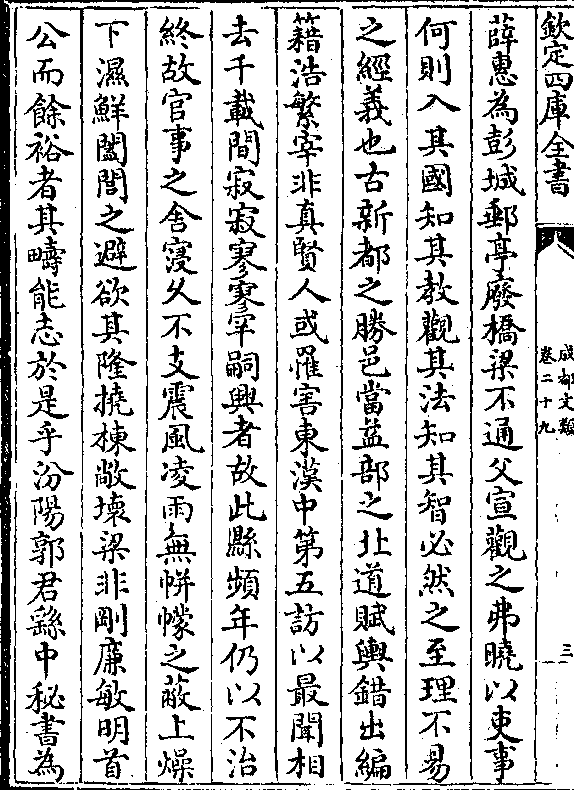 欽定四庫全書
成都文類
卷二十九
三
薛惠為彭城郵亭廢橋梁不通父宣觀之弗曉以吏事
何則入其國知其教觀其法知其智必然之至理不易
之經義也古新都之勝邑當益部之北道賦輿錯出編
籍浩繁宰非真賢人或罹害東漢中第五訪以最聞相
去千載間寂寂寥寥罕嗣興者故此縣頻年仍以不治
終故官事之舍寖久不支震風凌雨無帡幪之蔽上燥
下濕鮮闔閭之避欲其隆撓棟敞壊梁非剛廉敏明首
公而餘裕者其疇能志於是乎汾陽郭君繇中秘書為